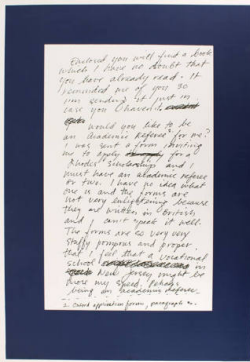 Enclosed you will find a book
which I have no doubt that
you have already read. It
reminded me of you so
I'm sending it just in
case you haven't.
Would you like to be
an academic referee for me?
I was sent a form inviting
me to apply for a
Rhodes Scholarship and I
must have an academic referee
or two. I have no idea what
one is and the forms are
not very enlightening because
they are written in British
and I can't speak it well.
The forms are so very very
stuffy pompous and proper
that I felt that a vocational
school in
New Jersey might be
more my speed. Perhaps
being an academic referee
2. Coked application form, paragraph